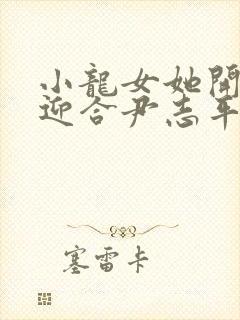 小龍女她開
迎合尹志平
塞雷卡